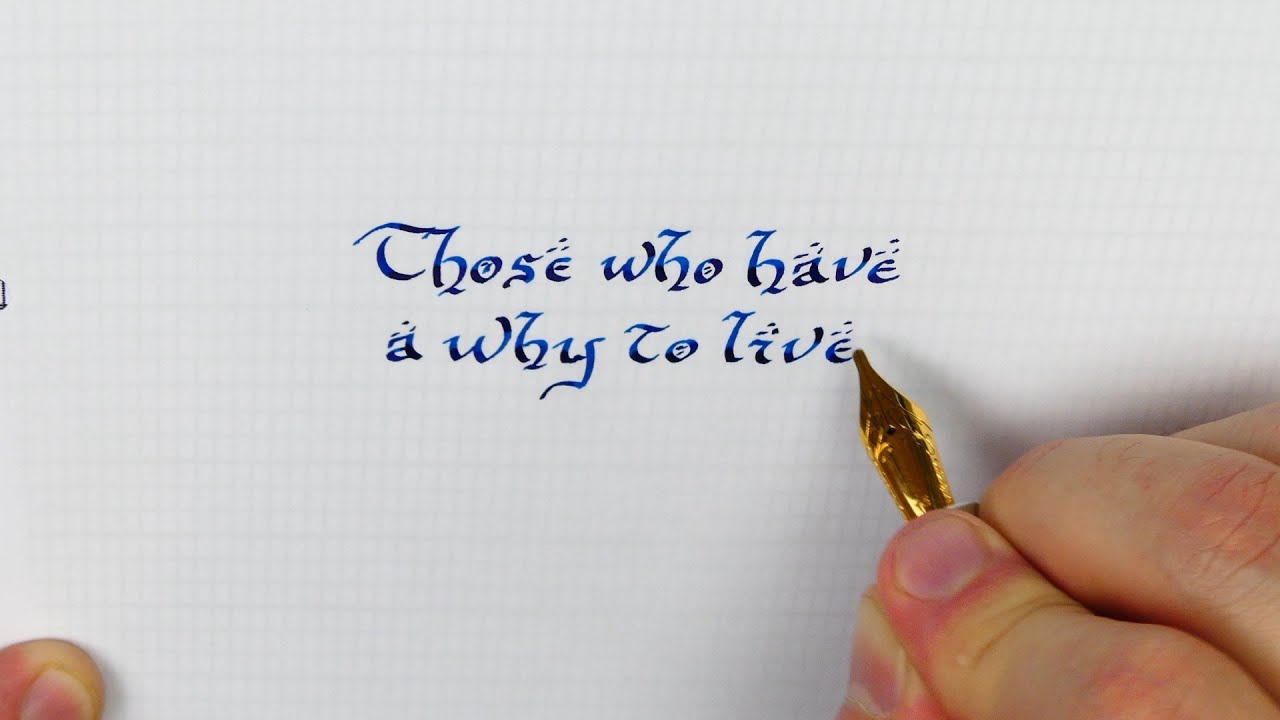 Those who have
a why to live